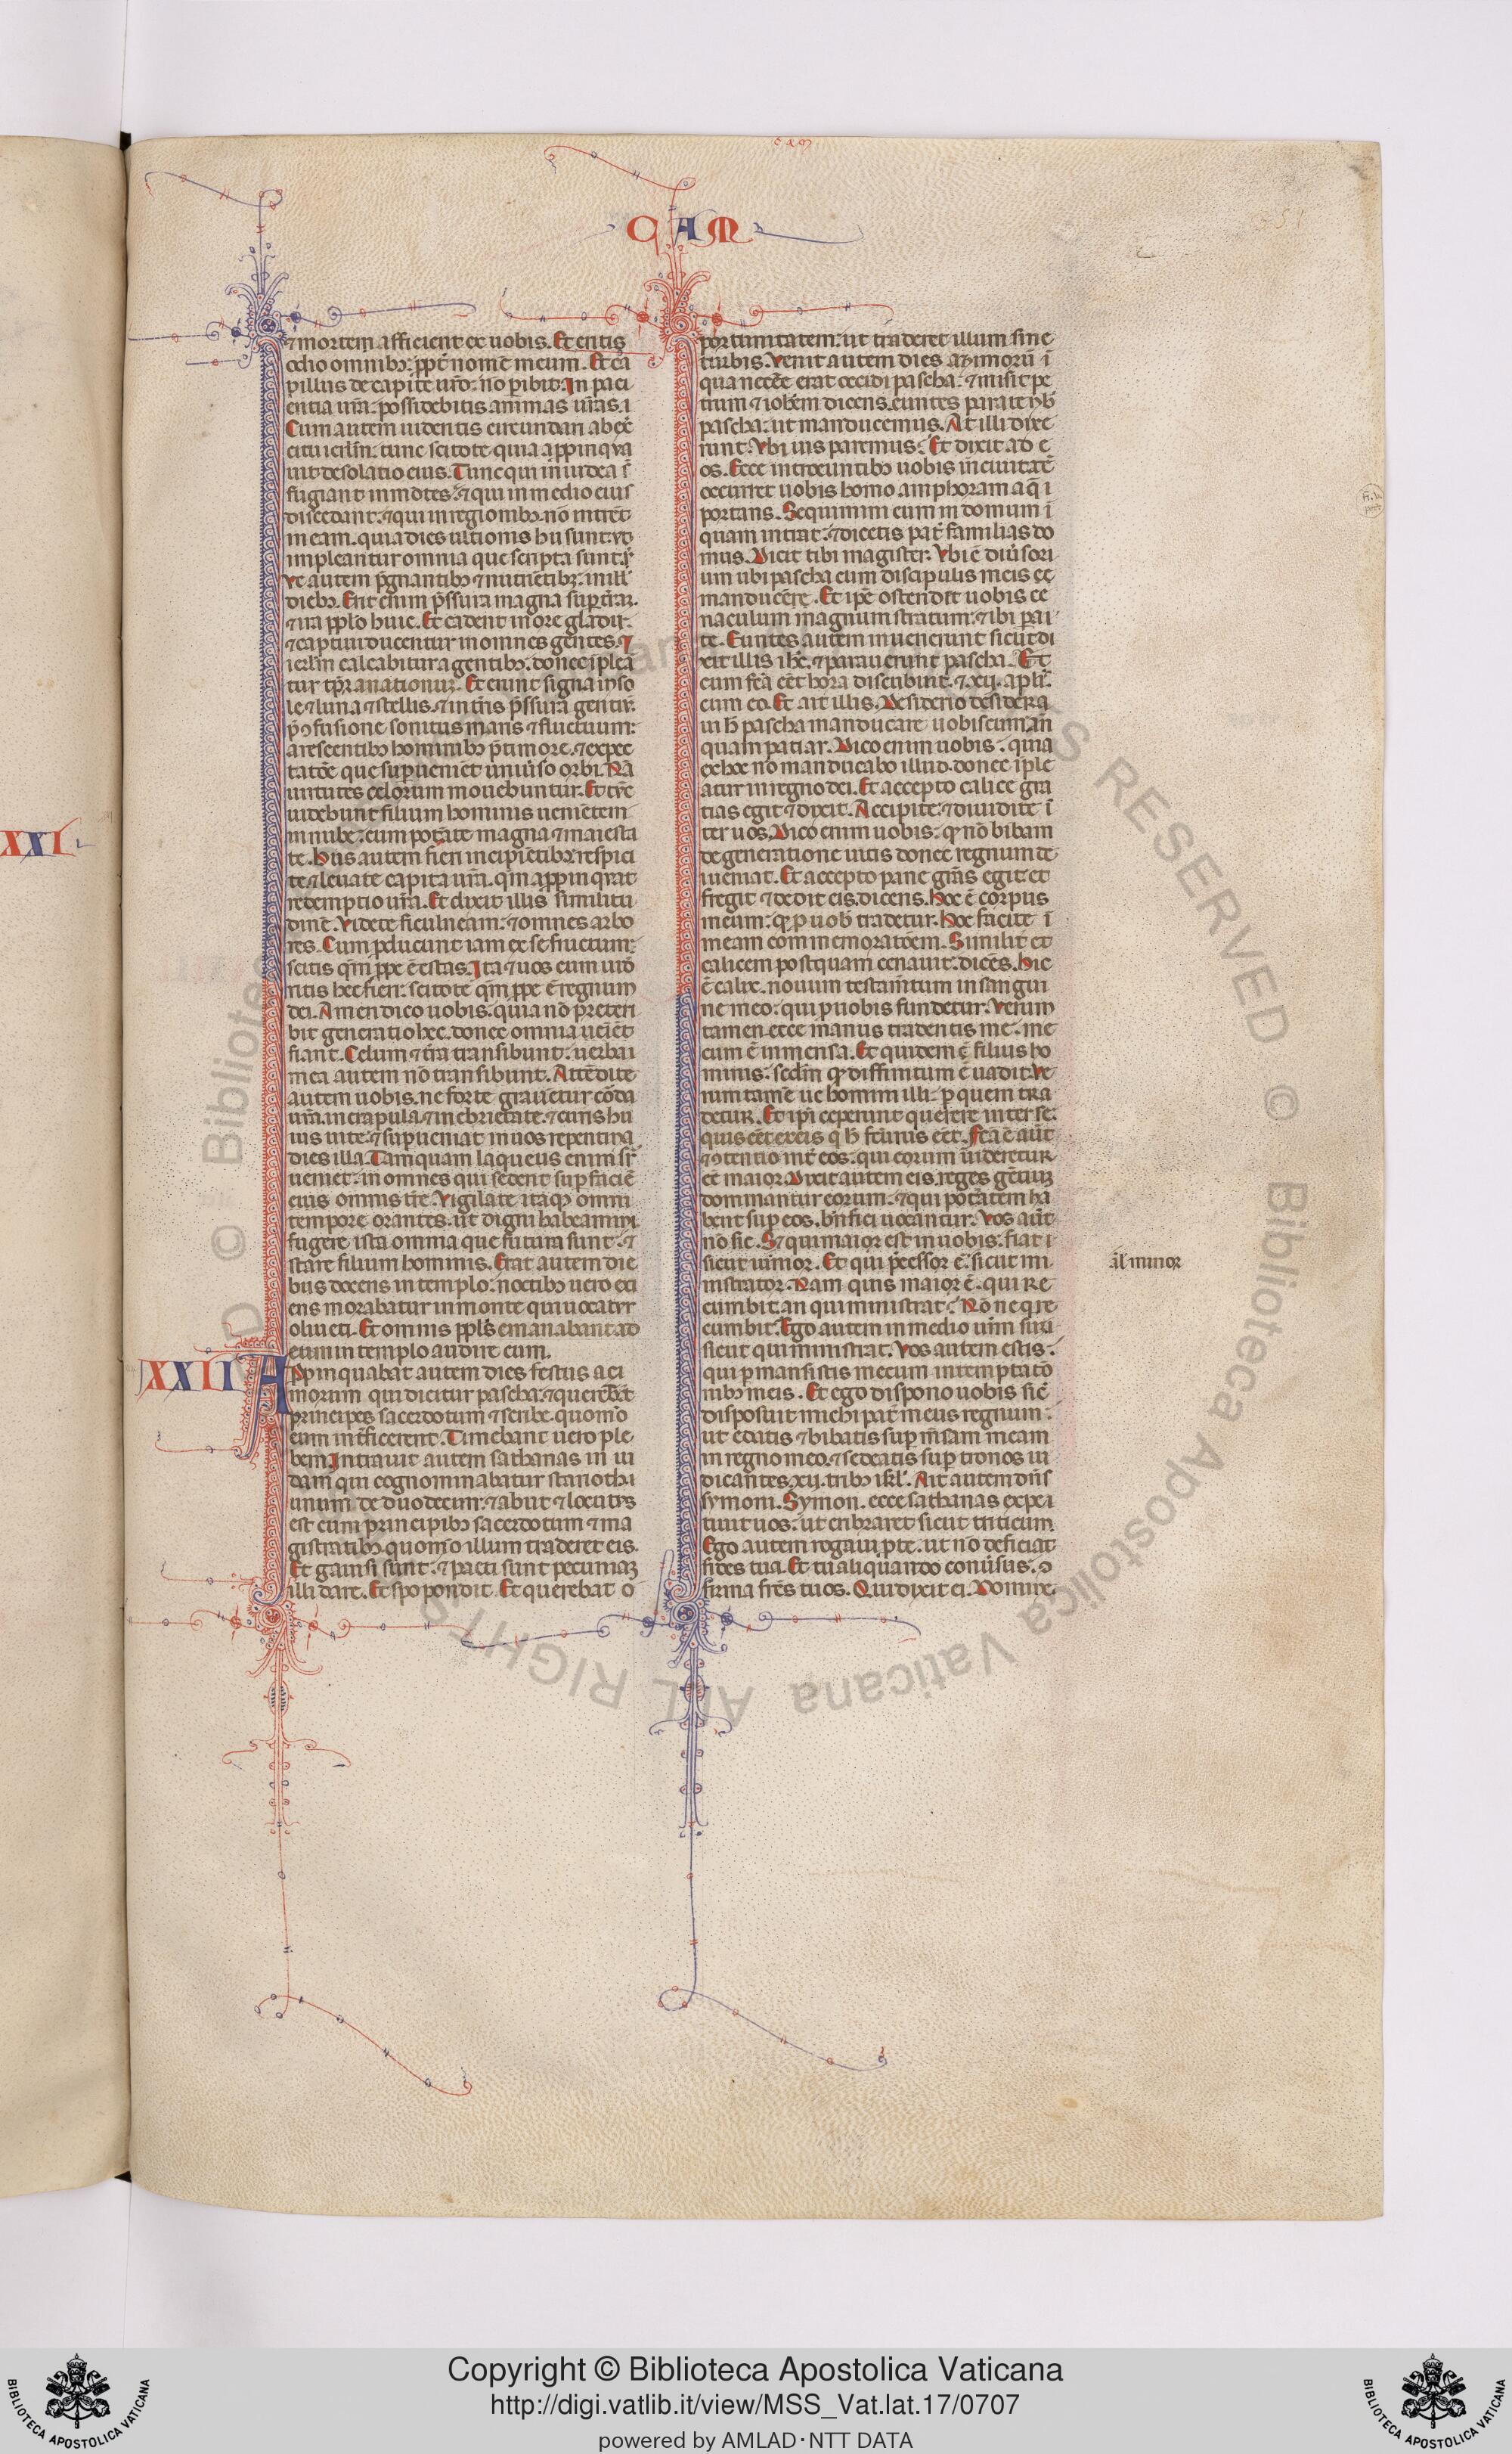 CAM
⁊ mortem afficient ex uobis. Et eritis
odio omnibꝫ: ꝓpt̃ nomẽ meum. Et ca
pillus de capite ur̃o: nõ ꝑibit. In paci
entia ur̃a: possidebitis animas ur̃as.
Cum autem uideritis circundari ab ex̃
citu ierlm̃: tunc scitote quia appinqua
uit desolatio eius. Tunc qui in iudea s̃
fugiant in mõtes: ⁊ qui in medio eius
discedant: ⁊ qui in regionibꝫ. nõ intrẽt
in eam. quia dies ultionis hii sunt: ut
impleantur omnia que scripta sunt.
Ve autem p̃gnantibꝫ ⁊ nutriẽtibꝫ: in ill̃
diebꝫ. Erit enim p̃ssura magna suꝑ tr̃am.
⁊ ira pplo huic. Et cadent in ore gladii:
⁊ captiui ducentur in omnes gentes. ⁊
ierlm̃ calcabitur a gentibꝫ. donec iplea
tur tp̃ra nationum. Et erunt signa in so
le ⁊ luna ⁊ stellis. ⁊ in tr̃is p̃ssura gentiũ:
p̃ ↄfusione sonitus maris ⁊ fluctuum:
arescentibꝫ hominibꝫ p̃ timore. ⁊ expec
tatõe que supueniẽt uniũso orbi. Nã
uirtutes celorum mouebuntur. Et tũc
uidebunt filium hominis uenientem
in nube: cum potãte magna ⁊ maiesta
te. Hiis autem fieri incipiẽtibꝫ: respici
te ⁊ leuate capita ur̃a. qm̃ appinquat
redemptio ur̃a. Et dixit illis similitu
dinẽ. Videte ficulneam: ⁊ omnes arbo
res. Cum ꝓducunt iam ex se fructum:
scitis qm̃ ꝓpe ẽ estas. Ita ⁊ uos cum uid̃
ritis hec fieri: scitote qm̃ ꝓpe ẽ regnum
dei. Amen dico uobis. quia nõ p̃teri
bit generatio hec. donec omnia
fiant. Celum ⁊ tr̃a transibunt: uerba
mea autem nõ transibunt. Attẽdite
autem uobis. ne forte grauẽtur corda
ur̃a. in crapula. ⁊ in ebrietate. ⁊ curis hu
ius uite: ⁊ supueniat in uos repentina
dies illa. Tamquam laqueus enim
ueniet: in omnes qui sedent suꝑ faciẽ
eius omnis tr̃e. Vigilate itaqꝫ omni
tempore orantes. ut digni habeamini
fugere ista omnia que futura sunt: ⁊
stare filium hominis. Erat autem die
bus docens in templo: noctibꝫ uero exi
ens morabatur in monte qui uocatur
oliueti. Et omnis ppl̃s emanabant ad
eum in templo audire eum.
XXII
Appinquabat autem dies festus aci
morum qui dicitur pascha: ⁊ querebãt
principes sacerdotum ⁊ scribe. quomõ
eum int̃ficerent. Timebant uero ple
bem. Intrauit autem sathanas in iu
dam qui cognominabatur scarioth:
unum de duodecim: ⁊ abiit ⁊ locutus
est cum principibꝫ sacerdotum ⁊ ma
gistratibꝫ. quomõo illum traderet eis.
Et gauisi sunt: ⁊ pacti sunt pecuniam
illi dare. Et spopondit. Et querebat o
portunitatem: ut traderet illum sine
turbis. Venit autem dies azimorũ ĩ
qua necẽe erat occidi pascha: ⁊ misit pe
trum ⁊ ioh̃em dicens. euntes parate nob̃
pascha: ut manducemus. At illi dixe
runt. Vbi uis paremus: Et dixit ad e
os. Ecce introeuntibꝫ uobis in ciuitatẽ
occurret uobis homo amphoram aq̃
portans. Sequimini eum in domum ĩ
quam intrat: ⁊ dicetis pat̃ familias do
mus. Dicit tibi magister. Vbi ẽ diũsori
um ubi pascha cum discipulis meis
manducẽ. Et ip̃e ostendet uobis ce
naculum magnum stratum: ⁊ ibi para
te. Euntes autem inuenerunt sicut di
xit illis ih̃c. ⁊ parauerunt pascha. Et
cum fc̃a eẽt hora discubuit. ⁊ xij. apl̃i
cum eo. Et ait illis. Desiderio desidera
ui h̃ pascha manducare uobiscum añ
quam patiar. Dico enim uobis. quia
ex hoc nõ manducabo illud. donec iple
atur in regno dei. Et accepto calice gra
tias egit ⁊ dixit. Accipite: ⁊ diuidite ĩ
ter uos. Dico enim uobis: qꝫ nõ bibam
de generatione uitis donec regnum de
i ueniat. Et accepto pane gr̃as egit et
fregit ⁊ dedit eis dicens. Hoc ẽ corpus
meum: qꝫ ꝓ uob̃ tradetur. Hoc facite ĩ
meam commemoratõem. Similit̃ et
calicem postquam cenauit: dicẽs. Hic
ẽ calix. nouum testam̃tum in sangui
ne meo: qui ꝓ uobis fundetur. Verum
tamen ecce manus tradentis me: me
cum ẽ in mensa. Et quidem ẽ filius ho
minis: sedm̃ qꝫ diffinitum ẽ uadit. Ve
rum tamẽ ue homini illi: ꝑ quem tra
detur. Et ip̃i ceperunt querere inter se:
quis eẽt ex eis q̃ h̃ fc̃urus eẽt. Fc̃a ẽ aut̃
⁊ ↄtentio int̃ eos: quis eorum uideretur
eẽ maior. Dixit autem eis. reges gẽtium
dominantur eorum: ⁊ qui potãtem ha
bent sup eos. bñfici uocantur. Vos aut̃
nõ sic. Sꝫ qui maior est in uobis: fiat
sicut iunior. Et qui p̃cessor ẽ: sicut mi
nistrator. Nam quis maior ẽ. qui re
cumbit: an qui ministrat: Nõne q̃ re
cumbit. Ego autem in medio ur̃m sum
sicut qui ministrat. Vos autem estis:
qui ꝑmansistis mecum in temptatõ
nibꝫ meis. Et ego dispono uobis sic̃
disposuit michi pat̃ meus regnum:
ut edatis ⁊ bibatis suꝑ m̃sam meam
in regno meo. ⁊ sedeatis suꝑ tronos iu
dicantes. xij. tribꝫ isrl̃. Ait autem dñs
symoni. Symon. ecce sathanas expeti
uit uos: ut cribraret sicut triticum.
Ego autem rogaui ꝓ te. ut nõ deficiat
fides tua. Et tu aliquando conũsus: ↄ
firma fr̃es tuos. Qui dixit ei. Domine.
al̃ minor
XXI
Copyright © Biblioteca Apostolica Vaticana
http://digi.vatlib.it/view/MSS_Vat.lat.17/0707
powered by AMLAD·NTT DATA
BIBLIOTECA APOSTOLICA VATICANA
BIBLIOTECA APOSTOLICA VATICANA
© Biblioteca Apostolica Vaticana ALL RIGHTS RESERVED